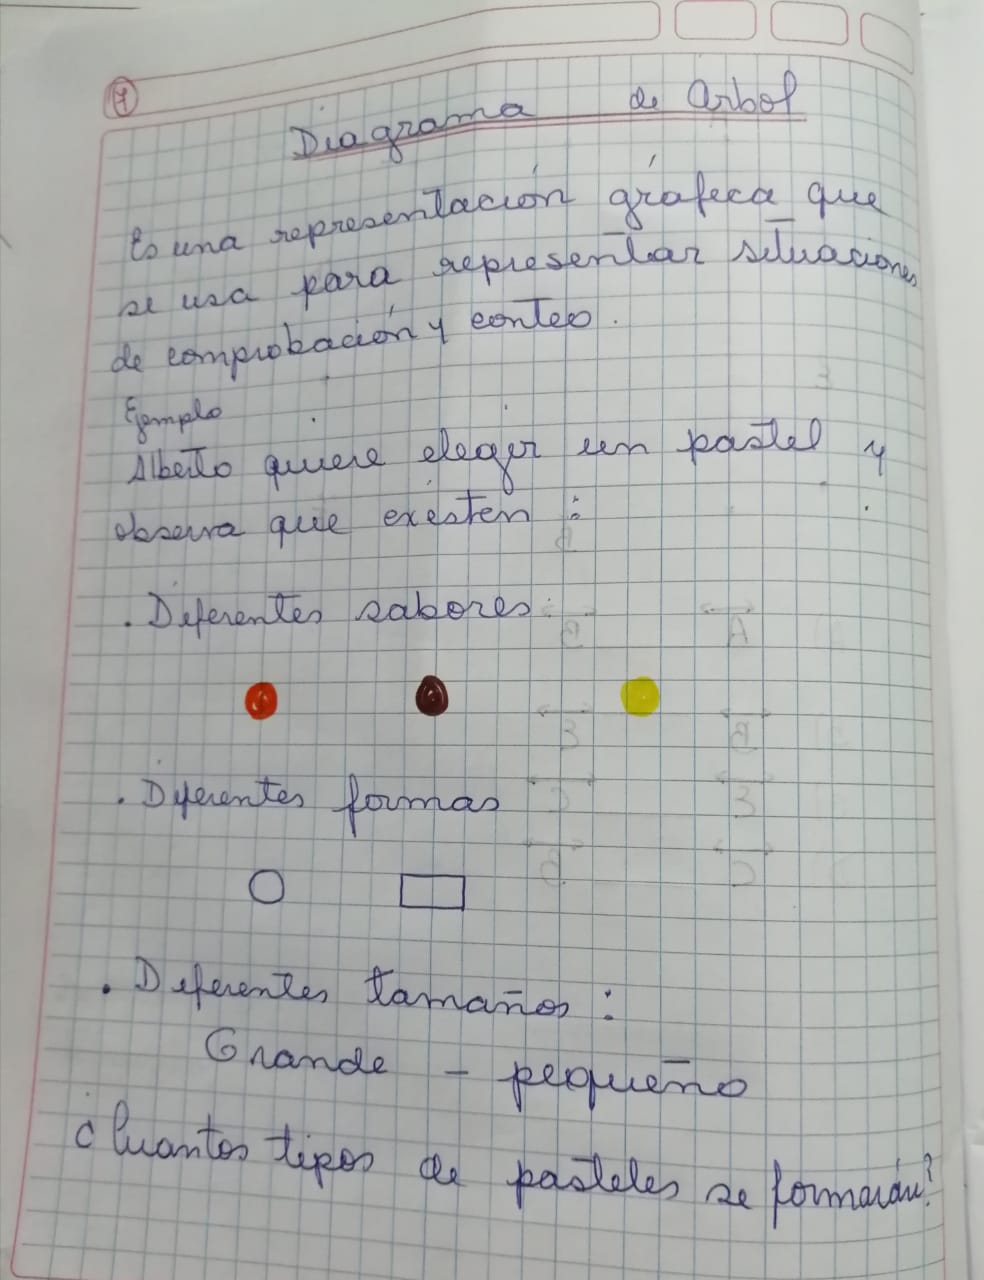 7
Diagrama de Arbol
Es una representación gráfica que
se usa para representar situaciones
de comprobación y conteo.
Ejemplo
Alberto quiere elegir un pastel y
observa que existen :
. Diferentes sabores:
. Diferentes formas
. Diferentes tamaños :
Grande - pequeño
¿Cuantos tipos de pasteles se formarán?